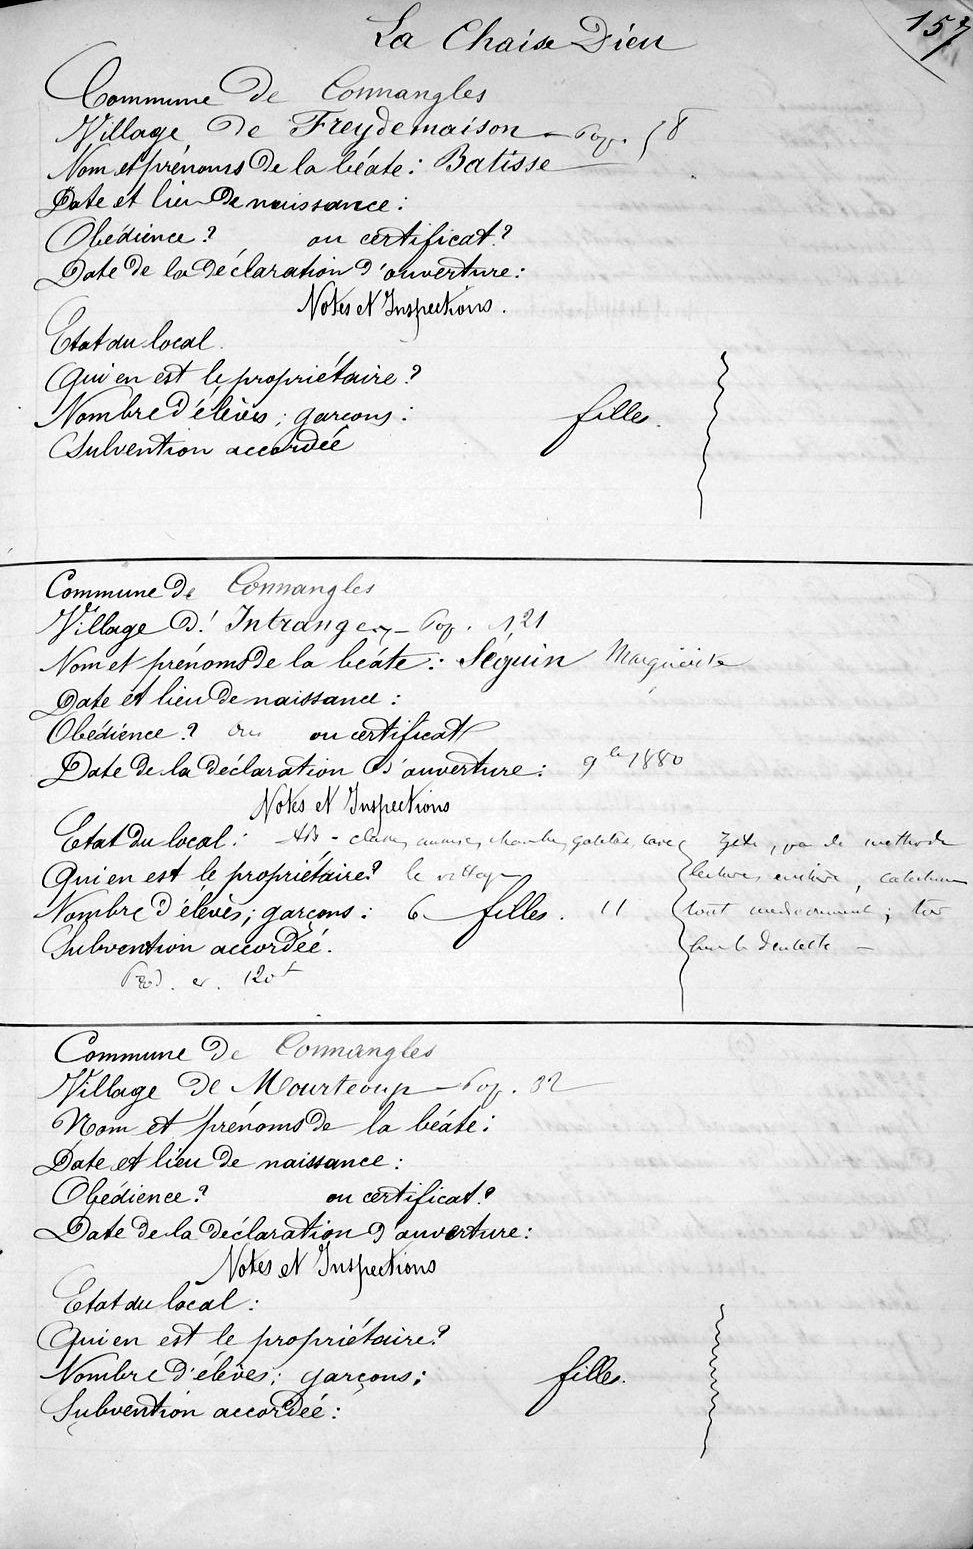 157
La Chaise Dieu
Commune de Connangles
Village de Freydemaison - Pop. 58
Nom et prénoms de la béate : Batisse
Date et lieu de naissance :
Obédience ? ou certificat ?
Date de la déclaration d'ouverture :
Notes et Inspections.
Etat du local
Qui en est le propriétaire ?
Nombre d'élèves ; garçons : filles.
Subvention accordée
Commune de Connangles
Village d'Intranges - Pop. 121
Nom et prénoms de la béate : Séguin Marguerite
Date et lieu de naissance :
Obédience ? ou certificat
Date de la déclaration d'ouverture : 9bre 1880
Notes et Inspections
Etat du local : AB - classe,
Zélée, pas de méthode
Qui en est le propriétaire ? le village
lecture, écriture,
Nombre d'élèves ; garçons : 6 filles. 11
tout médiocrement ;
Subvention accordée.
dentelle -
120f
Commune de Connangles
Village de Mourteoup - Pop. 32
Nom et prénoms de la béate :
Date et lieu de naissance :
Obédience ? ou certificat ?
Date de la déclaration d'ouverture :
Notes et Inspections
Etat du local :
Qui en est le propriétaire ?
Nombre d'élèves ; garçons ; filles.
Subvention accordée :